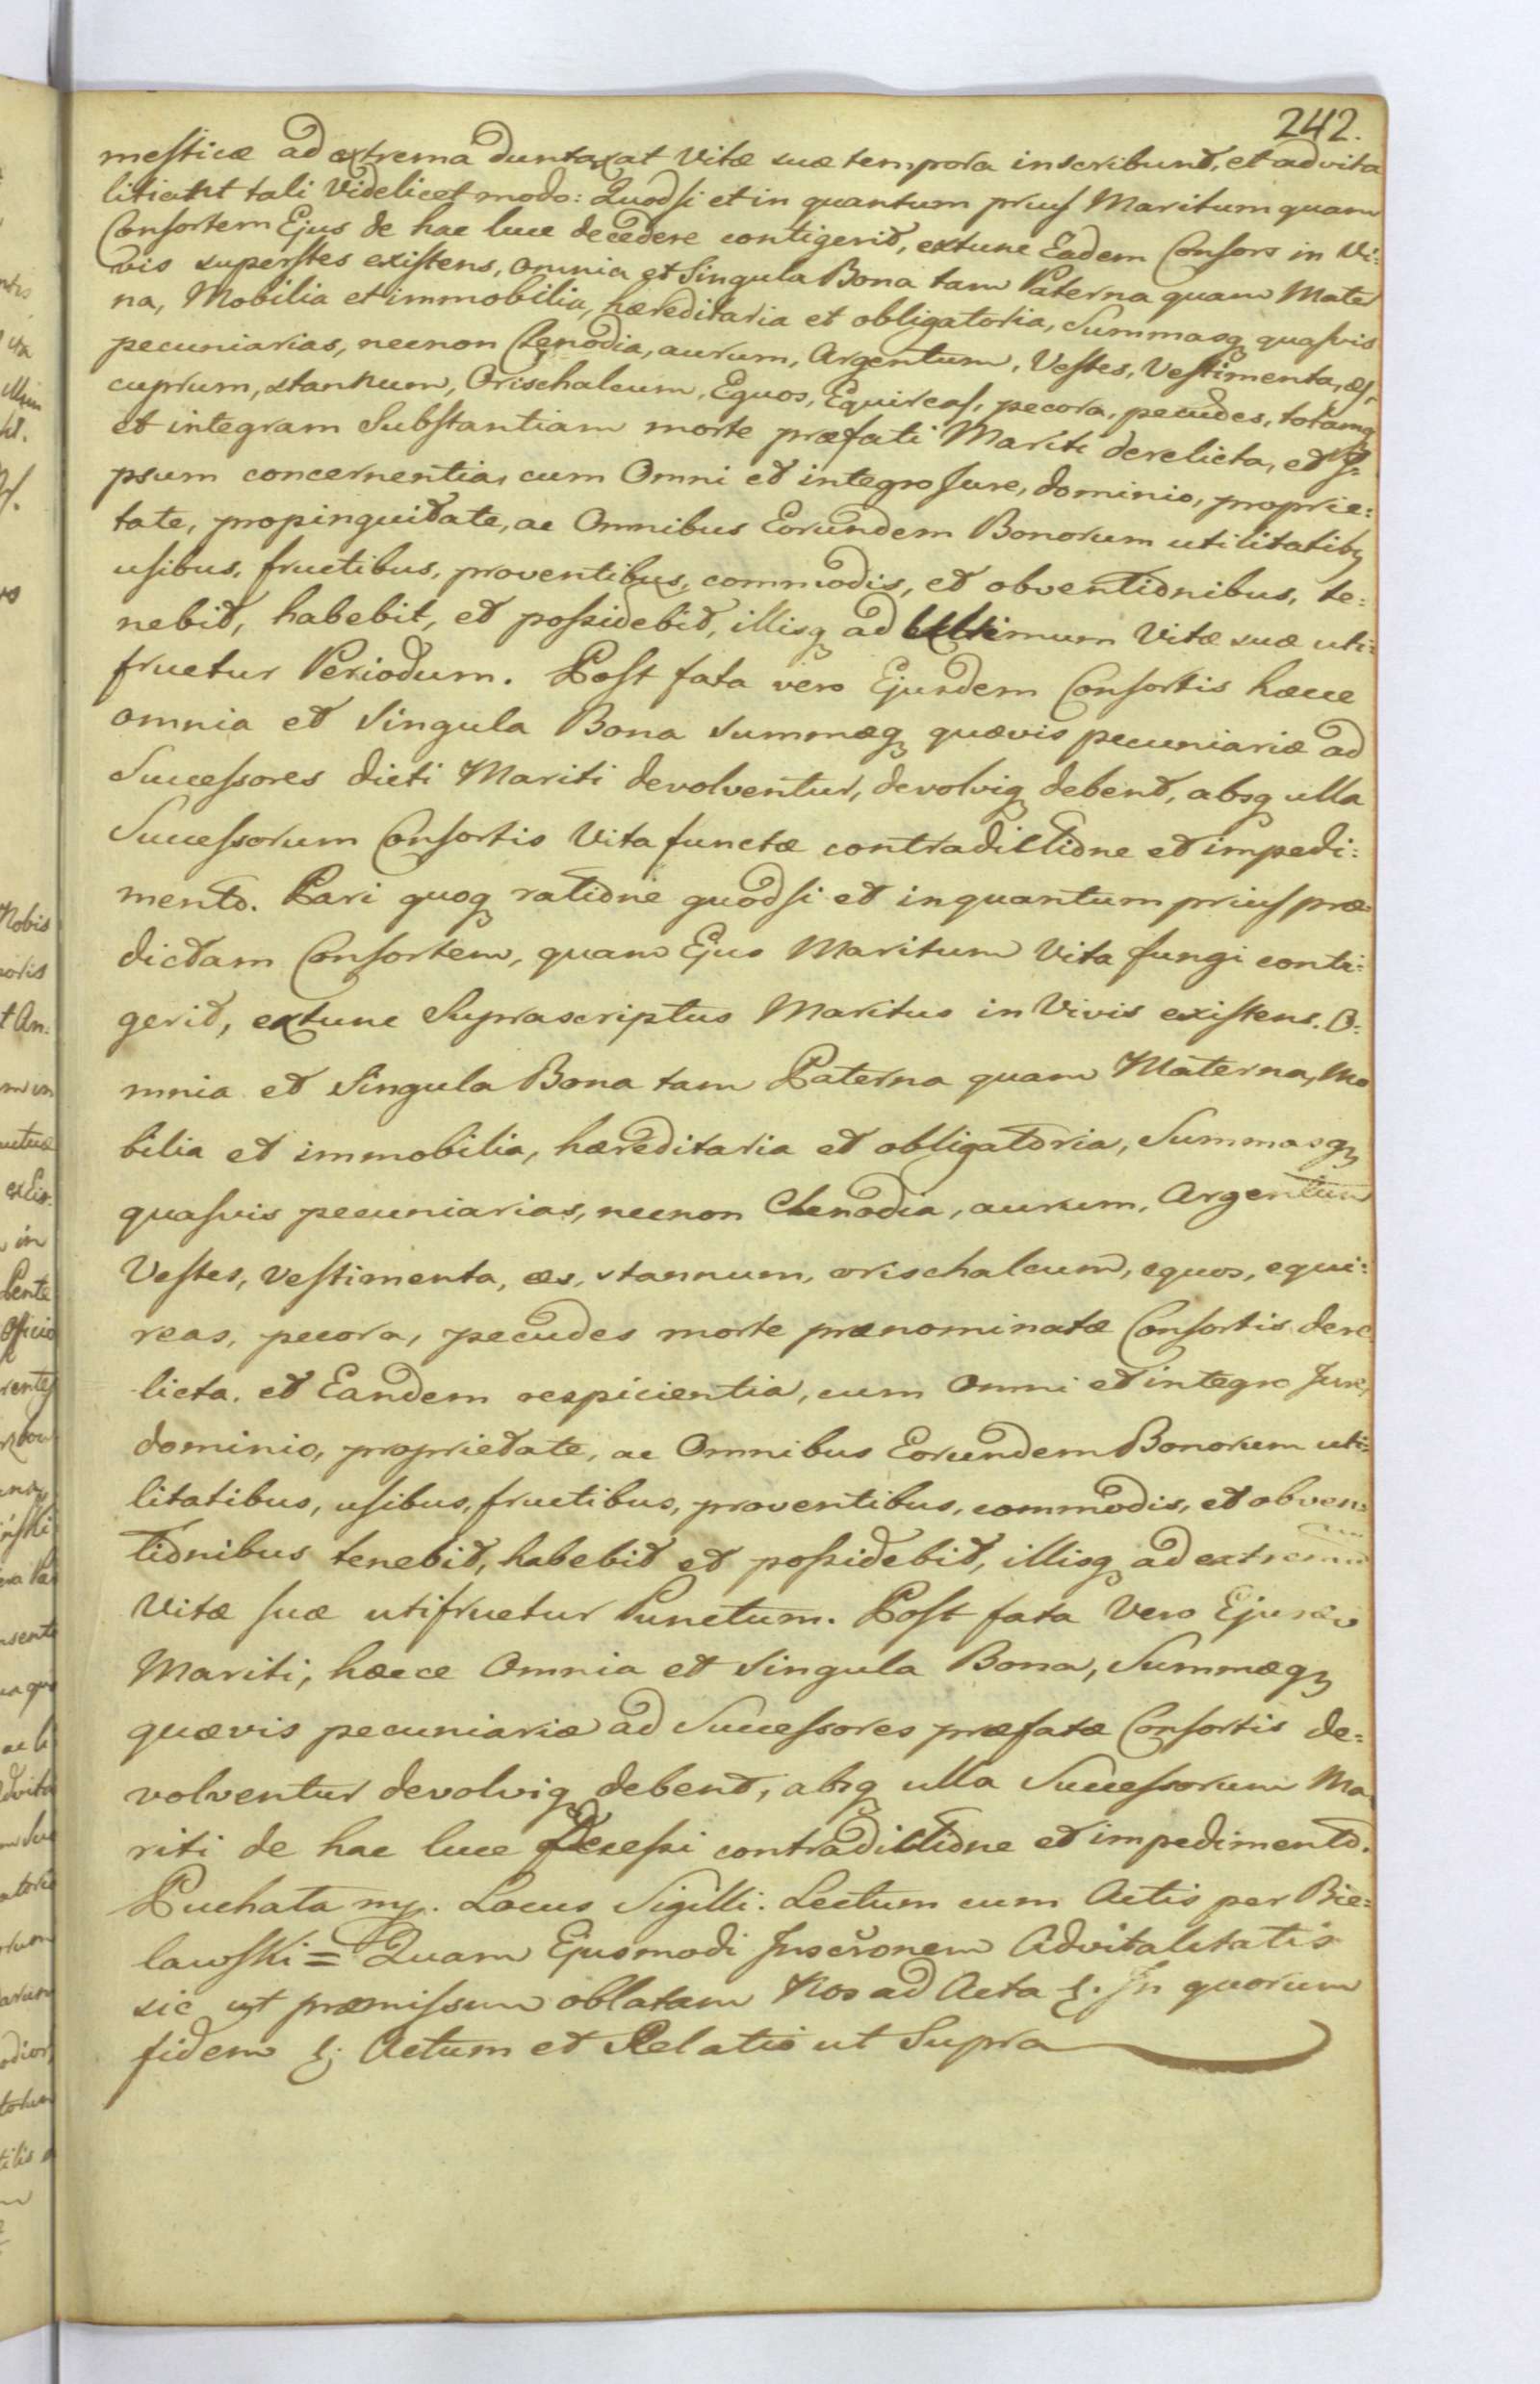 242.
mesticæ ad extrema duntaxat Vitæ suæ tempora inscribunt, et advita
litiant tali Videlicet modo: Quodsi et in quantum prius Maritum quam
Consortem Ejus de hac luce decedere contigerit, extunc Eadem Consors in Vi:
vis superstes existens, omnia et Singula Bona tam Paterna quam Mater
na, Mobilia et immobilia, hæreditaria et obligatoria, Summasq quasvis
pecuniarias, necnon Clenodia, aurum, Argentum, Vestes, Vestimenta, æs,
cuprum, stannum, Orischalcum, Equos, Equireas, pecora, pecudes, totamq
et integram Substantiam morte præfati Mariti derelicta, et I=
psum concernentia, cum Omni et integro Jure, dominio, proprie:
tate, propinquitate, ac Omnibus Eorundem Bonorum utilitatibq
usibus, fructibus, proventibus, commodis, et obventionibus, te:
nebit, habebit, et possidebit, illisq ad Ultimum Vitæ suæ uti=
fruetur Periodum. Post fata vero Ejusdem Consortis hæcce
omnia et Singula Bona summæq quævis pecuniariæ ad
Successores dicti Mariti devolventur, devolviq debent, absq ulla
Successorum Consortis Vita functæ contradictione et impedi:
mento. Pari quoq ratione quodsi et inquantum prius præ
dictam Consortem, quam Ejus Maritum Vita fungi conti:
gerit, extunc Suprascriptus Maritus in Vivis existens. O:
mnia et Singula Bona tam Paterna quam Materna, Mo
bilia et immobilia, hæreditaria et obligatoria, Summasq
quasvis pecuniarias, necnon Clenodia, aurum, Argentum
Vestes, Vestimenta, æs, stannum, orischalcum, equos, equi:
reas, pecora, pecudes morte prænominatæ Consortis dere
licta, et Eandem respicientia, cum Omni et integro Jure,
dominio, proprietate, ac Omnibus Eorundem Bonorum uti=
litatibus, usibus, fructibus, proventibus, commodis, et obven=
tionibus tenebit, habebit et possidebit, illisq ad extremum
Vitæ suæ utifruetur Punctum. Post fata Vero Ejusdem
Mariti, hæcce Omnia et Singula Bona, Summæq
quævis pecuniariæ ad Successores præfatæ Consortis de=
volventur devolviq debent, absq ulla Successorum Ma
riti de hac luce Decessi contradictione et impedimento.
Puchata mp. Locus Sigilli. Lectum cum Actis per Bie=
lawski = Quam Ejusmodi Inscronem Advitalitatis
sic ut præmissum oblatam Nos ad Acta &. In quorum
fidem &. Actum et Relatio ut Supra